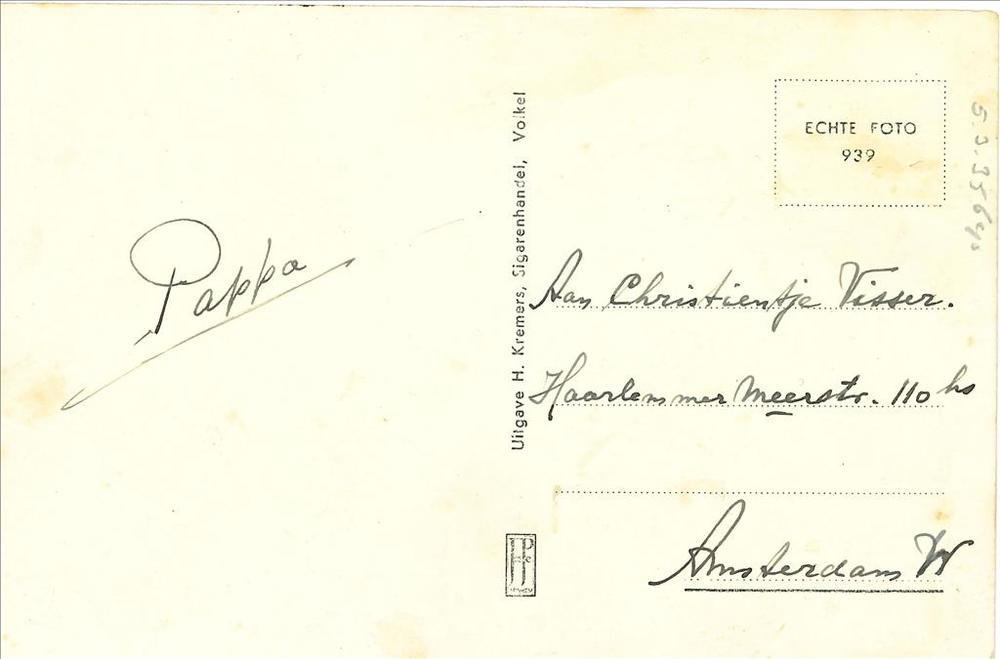 Pappa
Uitgave H. Kremers, Sigarenhandel, Volkel
ECHTE FOTO
939
Aan Christientje Visser.
Haarlemmer Meerstr. 110 hs
Amsterdam W